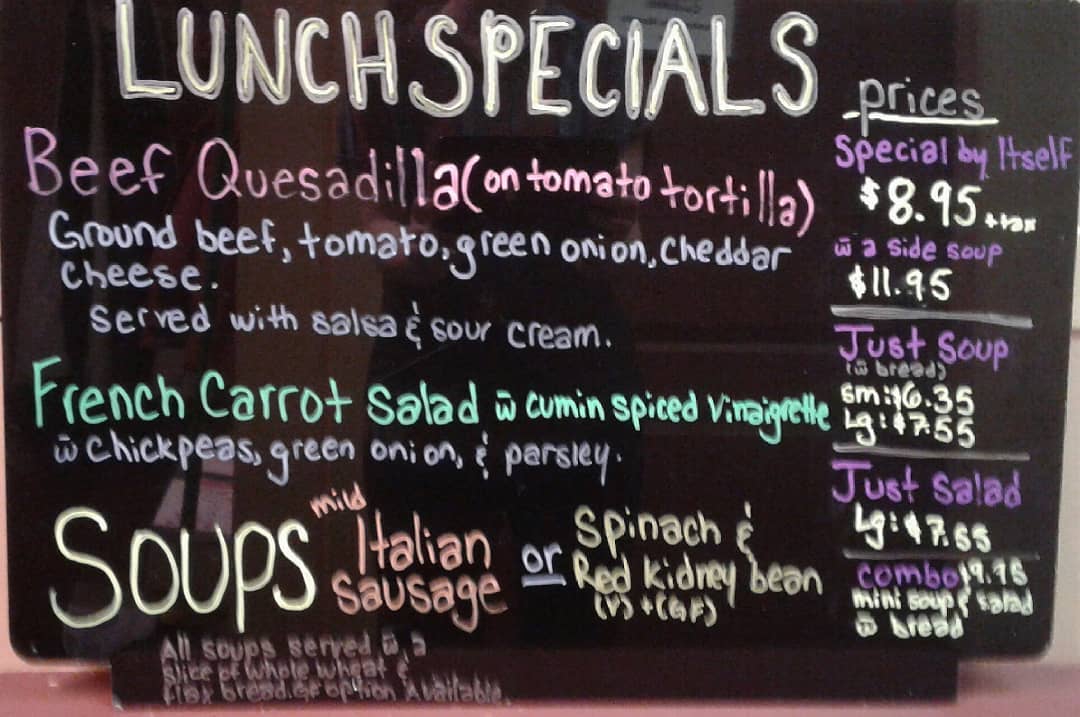 LUNCH SPECIALS
Beef Quesadilla (on tomato tortilla)
Ground beef, tomato, green onion, cheddar
cheese.
served with salsa & sour cream.
French Carrot salad w̄ cumin spiced vinaigrette
w̄ chickpeas, green onion, & parsley.
SOUPS
mild
Italian
sausage
or
Spinach &
Red kidney bean
(V) + (GF)
All soups served w̄ a
slice of whole wheat &
flax bread. GF option Available.
prices
Special by Itself
$8.95 + tax
w̄ a side soup
$11.95
Just Soup
(w̄ bread)
sm: $6.35
Lg: $7.55
Just salad
Lg: $7.55
combo $9.75
mini soup & salad
w̄ bread